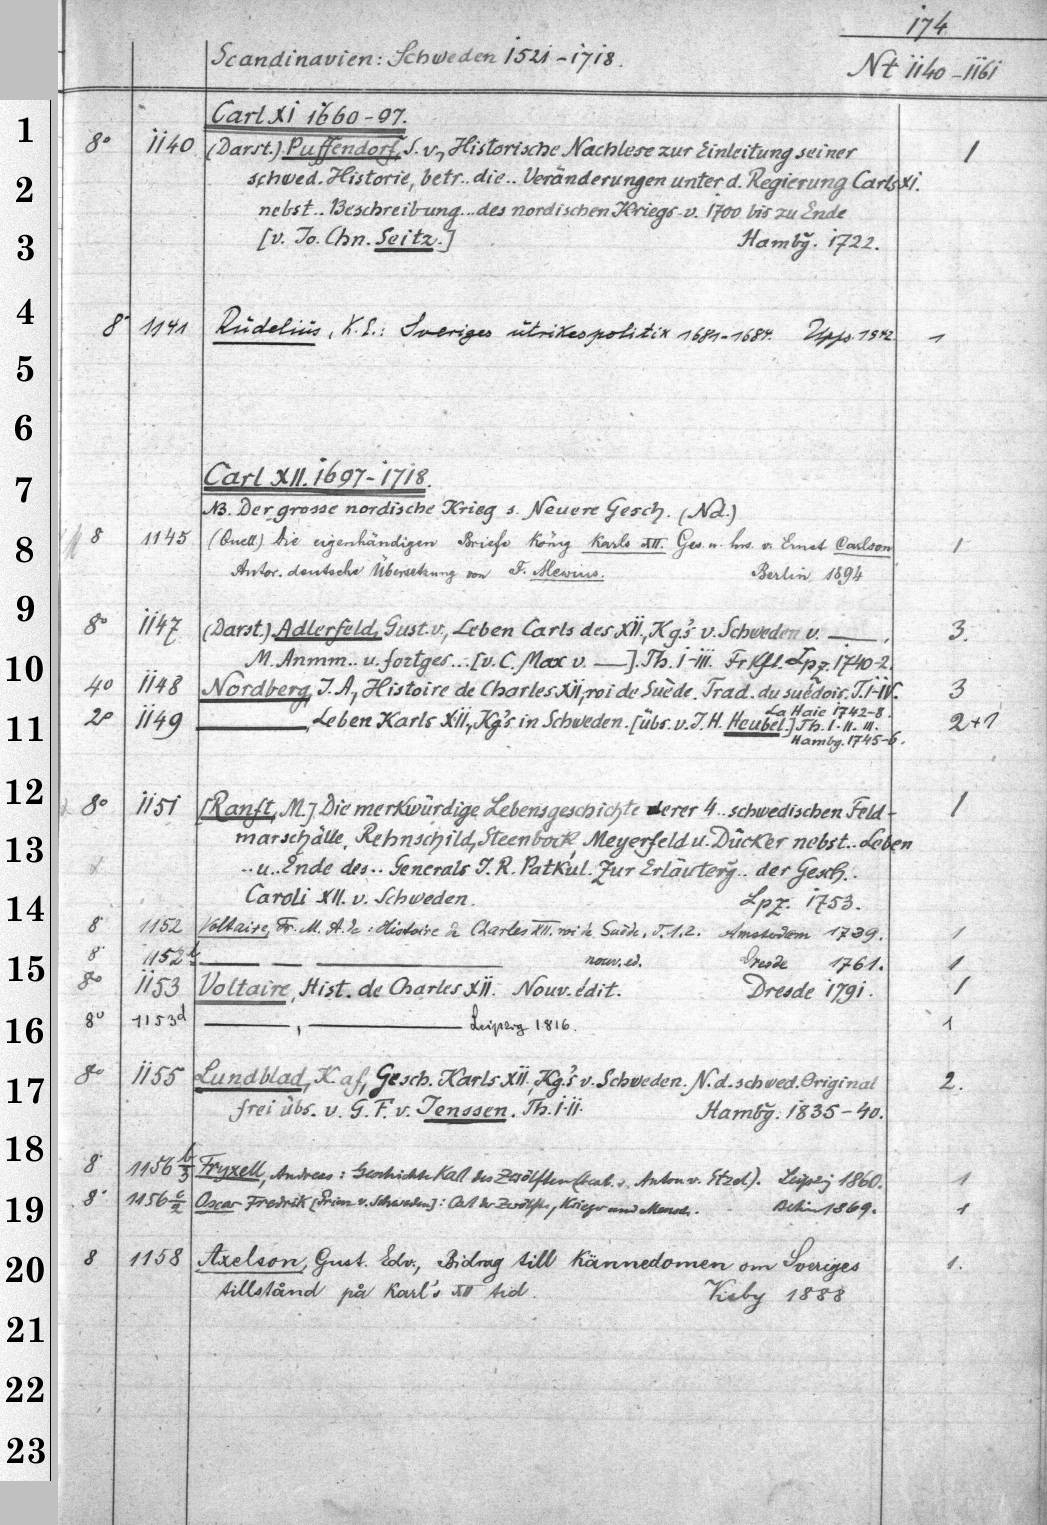 174
Scandinavien: Schweden 1521-1718.
Nt 1140-1161
Carl XI 1660-97.
1
8° 1140 (Darst.) Puffendorf, S. v., Historische Nachlese zur Einleitung seiner 1
2
schwed. Historie, betr.. die.. Veränderungen unter d. Regierung Carls XI.
nebst.. Beschreibung... des nordischen Kriegs v. 1700 bis zu Ende
3
[v. Jo. Chn. Seitz.] Hambg. 1722.
4
8° 1141 Rudelius, K. E.: Sveriges utrikespolitik 1681-1684. Upps. 1942. 1
5
6
Carl XII. 1697-1718.
7
NB. Der grosse nordische Krieg s. Neuere Gesch. (Nd.)
8
8 1145 (Quell) Die eigenhändigen Briefe König Karls XII. Ges. u. hrs. v. Ernst Carlson 1
Autor. deutsche Übersetzung von F. Mewius. Berlin 1894
9
8° 1147 (Darst.) Adlerfeld, Gust. v., Leben Carls des XII., Kg.'s v. Schweden v. —, 3.
10
M. Anmm.. u. fortges... [v. C. Max v. —]. Th. I-III. Frkfl. Lpz. 1740-2.
4° 1148 Nordberg, J. A., Histoire de Charles XII, roi de Suède. Trad. du suédois. T. I-IV. 3
La Haie 1742-8.
11
2° 1149 —, Leben Karls XII, Kg's in Schweden. [übs. v. J. H. Heubel.] Th. I. II. III. 2+1
Hambg. 1745-6.
12
8° 1151 [Ranft, M.] Die merkwürdige Lebensgeschichte derer 4.. schwedischen Feld- 1
13
marschälle, Rehnschild, Steenbock, Meyerfeld u. Dücker nebst.. Leben
.. u. Ende des.. Generals J. R. Patkul. Zur Erläuterg.. der Gesch..
14
Caroli XII. v. Schweden. Lpz. 1753.
8° 1152 Voltaire, Fr. M. A. de: Histoire de Charles XII. roi de Suède. T. 1.2. Amsterdam 1739. 1
15
8° 1152b — — — nouv. ed. Dresde 1761. 1
8° 1153 Voltaire, Hist. de Charles XII. Nouv. édit. Dresde 1791. 1
16
8° 1153d —, — Leipzig 1816. 1
17
8° 1155 Lundblad, K. af, Gesch. Karls XII, Kg.'s v. Schweden. N. d. schwed. Original 2.
frei übs. v. G. F. v. Jenssen. Th. I. II. Hambg. 1835-40.
18
8° 1156 b/3 Fryxell, Andreas: Geschichte Karl des Zwölften v. Anton v. Etzel). Leipzig 1860. 1
19
8° 1156 c/2 Oscar Fredrik [Prinz v. Schweden]: Carl der Zwölfte, Krieger und Mensch. Berlin 1869. 1
20
8 1158 Axelson, Gust. Edv., Bidrag till kännedomen om Sveriges 1.
tillstånd på Karl's XII tid. Visby 1888
21
22
23